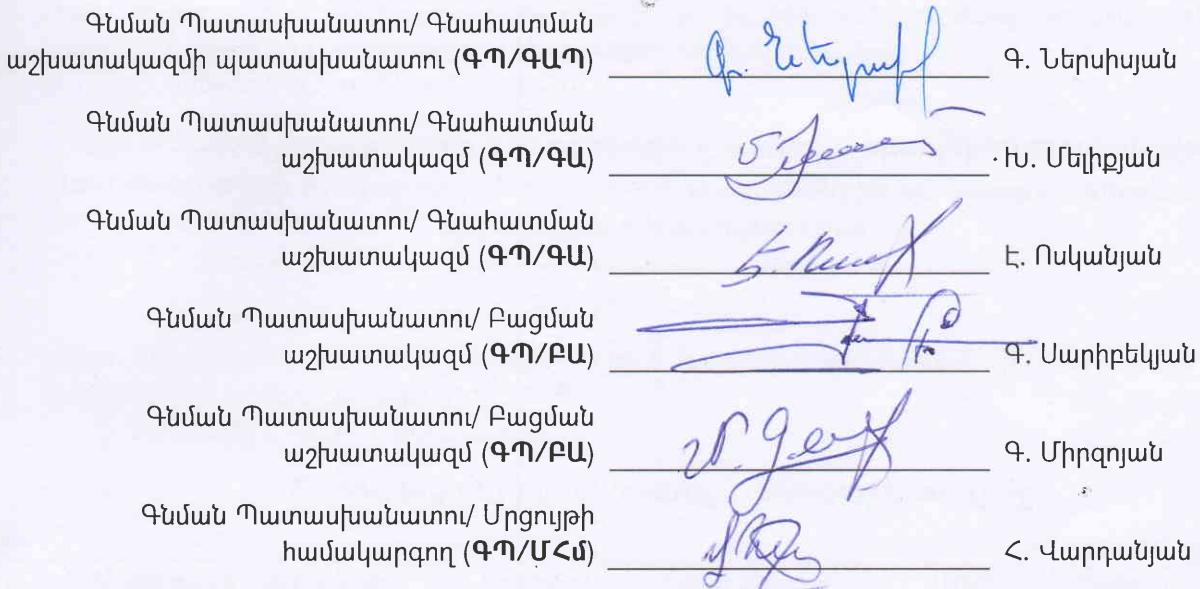 Գնման Պատասխանատու/ Գնահատման
աշխատակազմի պատասխանատու (ԳՊ/ԳԱՊ) Գ. Ներսիսյան
Գնման Պատասխանատու/ Գնահատման
աշխատակազմ (ԳՊ/ԳԱ) Խ. Մելիքյան
Գնման Պատասխանատու/ Գնահատման
աշխատակազմ (ԳՊ/ԳԱ) Է. Ոսկանյան
Գնման Պատասխանատու/ Բացման
աշխատակազմ (ԳՊ/ԲԱ) Գ. Սարիբեկյան
Գնման Պատասխանատու/ Բացման
աշխատակազմ (ԳՊ/ԲԱ) Գ. Միրզոյան
Գնման Պատասխանատու/ Մրցույթի
համակարգող (ԳՊ/ՄՀմ) Հ. Վարդանյան